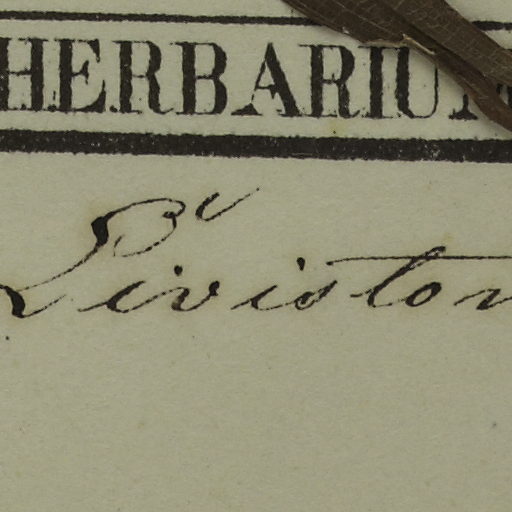 HERBARIUM
Liviston